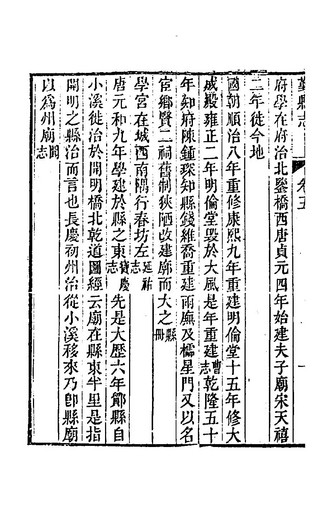 鄞縣志 卷五
府學在府治北鑒橋西唐貞元四年始建夫子廟宋天禧
二年徙今地
國朝順治八年重修康熙九年重建明倫堂十五年修大
成殿雍正二年明倫堂毀於大風是年重建曹志乾隆五十
年知府陳鍾琛知縣錢維喬重建兩廡及櫺星門又以名
宦鄉賢二祠舊制狹陋改建廓而大之縣冊
學宮在城西南隅行春坊左延祐志
唐元和九年學建於縣之東寶慶志先是大歷六年鄮縣自
小溪徙治於開明橋北乾道圖經云廟在縣東半里是指
開明之縣治而言也長慶初州治從小溪移來乃卽縣廟
以為州廟聞志